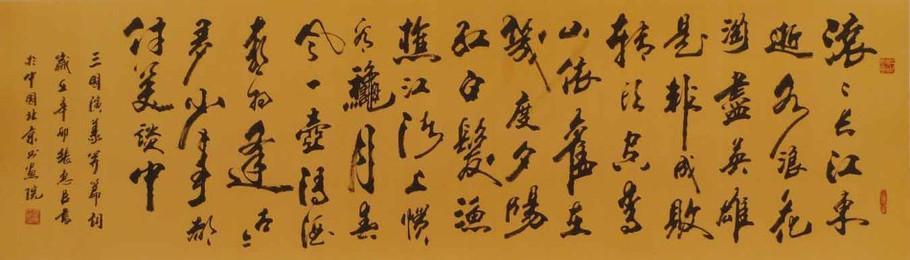 滚〻长江东
逝水浪花
淘盡英雄
是非成败
转头空青
山依舊在
幾度夕陽
红白髮漁
樵江渚上惯
看龝月春
风一壶濁酒
喜相逢古今
多少事都
付笑谈中
三国演义开篇词
歲在辛卯张书
於中国北京书画院